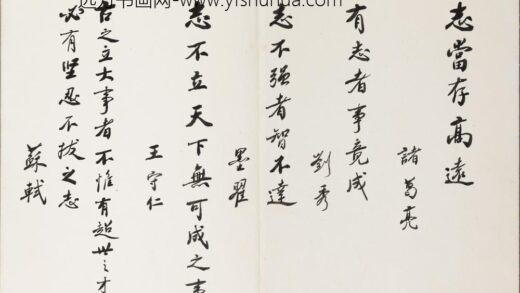 远方书画网-www.yfshuhua.com
志當存高遠
諸葛亮
有志者事竟成
劉秀
志不强者智不達
墨翟
志不立天下無可成之事
王守仁
古之立大事者不惟有超世之才
必有坚忍不拔之志
蘇軾